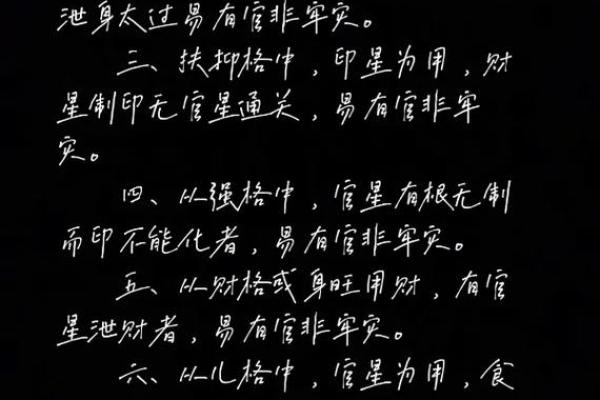 泄身太过易有官非牢灾。
三、扶抑格中，印星为用，财
星制印无官星通关，易有官非牢
灾。
四、从强格中，官星有根无制
而印不能化者，易有官非牢灾。
五、从财格或身旺用财，有官
星泄财者，易有官非牢灾。
六、从儿格中，官星为用，食